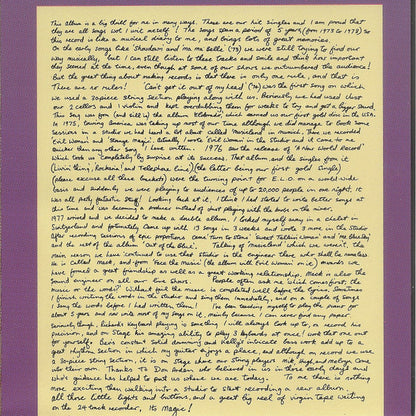 This album is a big thrill for me in many ways. These are our hit singles and I am proud that
they are all songs wot I writ meself! The songs span a period of 5 years (from 1973 to 1978) so
this record is like a musical diary to me, and brings lots of great memories.
On the early songs like 'Showdown' and 'ma ma Belle' ('73) we were still trying to find our
way musically, but I can still listen to these tracks and smile and think how important
they seemed at the time, even though at some of our shows we outnumbered the audience!
But the great thing about making records is that there is only one rule, and that is
There are no rules! 'Can't get it out of my head' ('74) was the first song on which
we used a 30 piece string section playing along with us. Previously we had used just
our 2 cellos and 1 violin and kept overdubbing them for weeks to try and get a bigger sound.
This song was from (and still is) the album 'Eldorado', which earned us our first gold disc in the U.S.A.
In 1975, touring America was taking up most of our time although we did manage to book some
sessions in a studio we had heard a lot about called 'Musicland' in Munich, there we recorded
'Evil Woman' and 'Strange magic', actually, I wrote 'Evil Woman' in the studio and it came to me
quicker than any other song I had written. 1976 saw the release of 'A New World Record'
which took us completely by surprise at its success. That album and the singles from it
(Livin' thing, Rockaria, and Telephone Line) (the latter being our first gold single)
(please excuse all these brackets) were the turning point for E.L.O. on a world wide
basis and suddenly we were playing to audiences of up to 20,000 people in one night, It
was all pretty fantastic stuff! Looking back at it, I think I had started to write better songs at
this time and was becoming a producer instead of just playing with the knobs on the mixer.
1977 arrived and we decided to make a double album. I locked myself away in a chalet in
Switzerland and fortunately came up with 13 songs in 3 weeks and wrote 3 more in the studio
after marathon sessions of epic proportions. Came 'Turn to stone' 'Sweet Talkin' woman' and 'Mr Blue Sky'
and the rest of the album 'Out of the Blue'. Talking of musicland which we weren't, the
main reason we have continued to use that studio is the engineer there who shall be nameless
he is called Mack, and from 'Face the music' (the album with Evil Woman on it) onwards we
have formed a great friendship as well as a great working relationship. Mack is also the
sound engineer on all our live shows. People often ask me 'which comes first, the
music or the words?' Without fail the music is completed well before the lyrics. Sometimes
I finish writing the words in the studio and sing them immediately, and on a couple of songs
I sang the words before I had written them. I've been teaching myself to play the piano for
about 5 years and now write most of my songs on it, mainly because I can never find any paper.
Seriously though, Richards keyboard playing is something I will always look up to, on record his
precision, and on stage his amazing ability to play 3 keyboards at once! work that one out
for yourself. Bevs constant solid drumming and Kelly's intricate bass work add up to a
great rhythm section in which my guitar enjoys a place, and although on record we use
a 30 piece string section, it is on stage where our string players Mik, Hugh, and Melvyn come
into their own. Thanks to Don Arden who believed in us in those early days and
who's guidance has helped to put us where we are today. To me there is nothing
more exciting than walking into a studio to start recording a new album,
all those little lights and buttons, and a great big reel of virgin tape waiting
on the 24 track recorder, It's Magic!